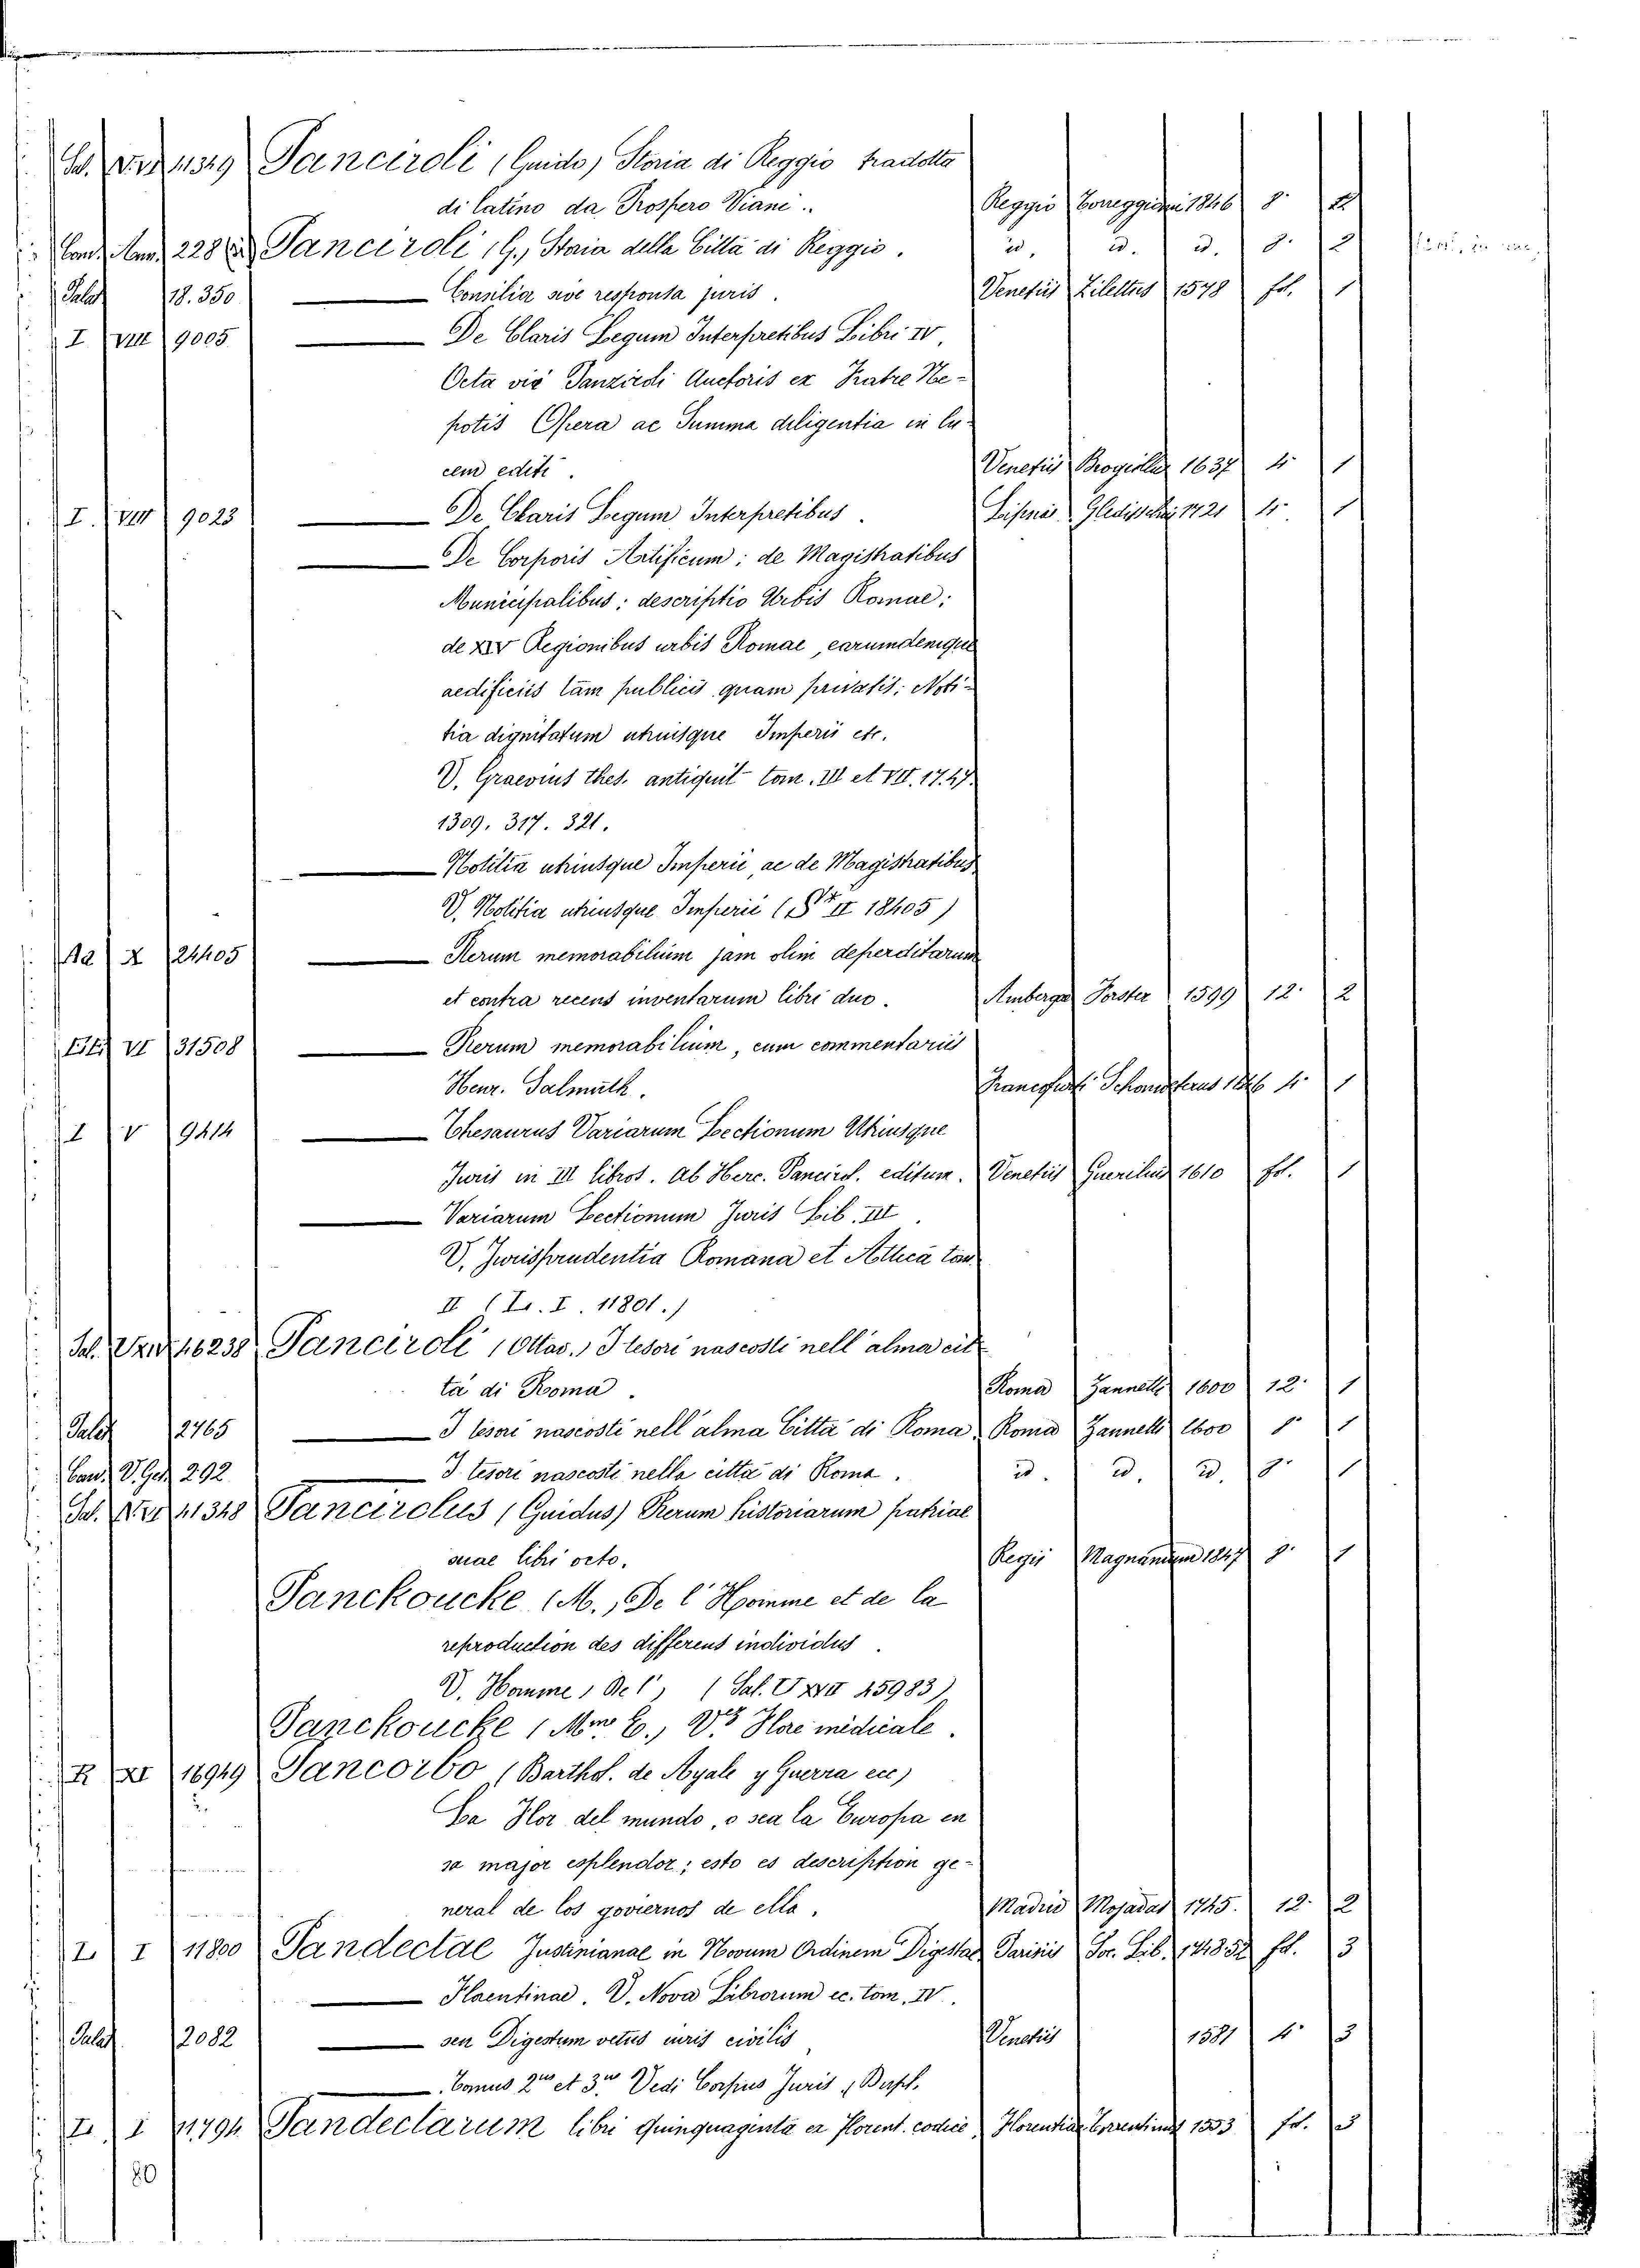 Panciroli (Guido) Storia di Reggio tradotta
di latino da Prospero Viani. Reggio 1846 8. 2
228 Panciroli (G.) Storia della Città di Reggio. id. id. id. 8. 2
Palat 18.350 — Consilia sive responsa juris. Venetiis Zilettus 1578 fol. 1
I VIII 9005 — De Claris Legum Interpretibus Libri IV
Octavio Auctoris ex Fratre Ne-
potis Opera ac Summa diligentia in lu-
cem editi. Venetiis 1637 4. 1
I. VIII 9023 — De Claris Legum Interpretibus. Lipsiae 1721 4. 1
— De Corporis Artificum; de Magistratibus
Municipalibus; descriptio Urbis Romae;
de XIV Regionibus urbis Romae, earumdemque
aedificiis tam publicis quam privatis; Noti-
tia dignitatum utriusque Imperii etc.
V. Graevius thes. antiquit tom. III et VII. 1747.
1309. 317. 321.
— Notitia utriusque Imperii, ac de Magistratibus
V. Notitia utriusque Imperii ( II 18405)
X 24405 — Rerum memorabilium jam olim deperditarum
et contra recens inventarum libri duo. Amberga Forster 1599 12. 2
VI 31508 — Rerum memorabilium, cum commentariis
Henr. Salmuth. 4. 1
I V 9414 — Thesaurus Variarum Lectionum Utriusque
Juris in III libros. Ab Herc. Pancirol. editum. Venetiis Guerilius 1610 fol. 1
— Variarum Lectionum Juris Lib. III.
V. Jurisprudentia Romana et Attica tom
II (L. I. 11801.)
46238 Panciroli (Ottav.) I tesori nascosti nell'alma cit-
tà di Roma. Roma Zannetti 1600 12. 1
Palat 2765 — I tesori nascosti nell'alma Città di Roma. Roma Zannetti 1600 1
292 — I tesori nascosti nella città di Roma. id. id. id. 8. 1
41348 Pancirolus (Guidus) Rerum historiarum patriae
suae libri octo. Regii 1847 8. 1
Panckoucke (M.) De l'Homme et de la
reproduction des differens individus.
V. Homme (De l') (Sal. 45983)
Panckoucke (Mme E.) Flore médicale.
R XI 16949 Pancorbo (Barthol. de Ayale y Guerra ecc)
La Flor del mundo, o sea la Europa en
sa major esplendor; esto es description ge-
neral de los goviernos de ella. Madrid Mojadas 1745. 12. 2
L I 11800 Pandectae Justinianae in Novum Ordinem Digestae Parisiis Soc. Lib. fol. 3
— Florentinae. V. Nova Librorum ec. tom. IV.
Palat. 2082 — seu Digestum vetus iuris civilis Venetiis 1581 4. 3
— Tomus 2us et 3us Vedi Corpus Juris
L I 11794 Pandectarum libri Quinquaginta ex Florent. codice Florentiae 1553 fol. 3
80